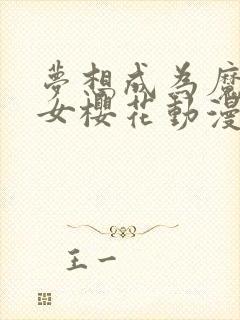 夢想成為魔
女櫻花動漫
王一